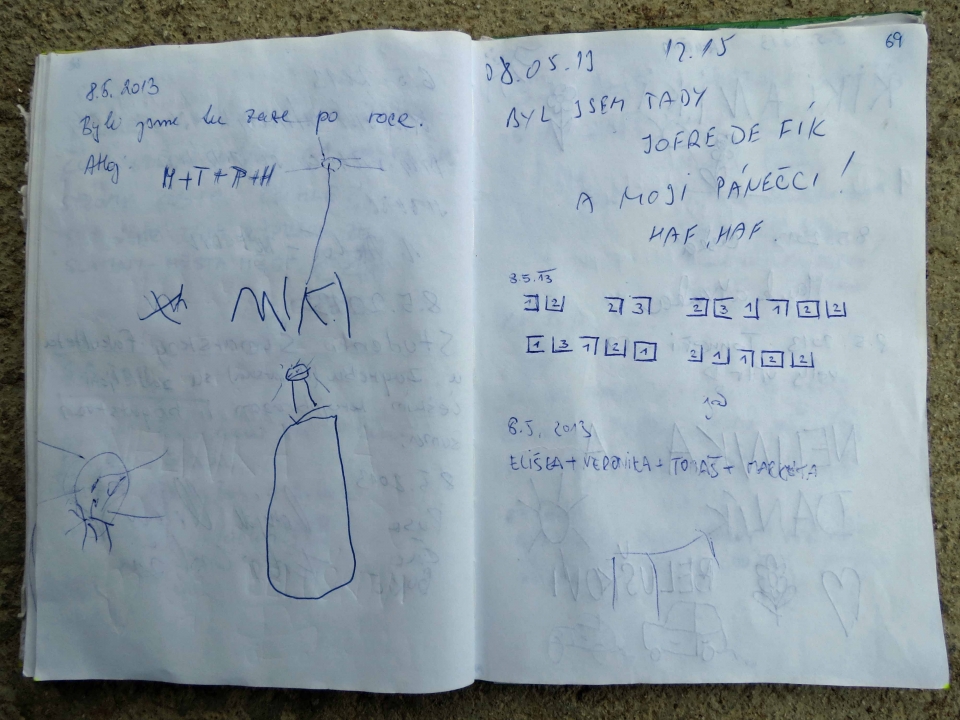 8.5. 2013
Byli jsme tu zase po roce.
Ahoj
M+T+P+H
MIKI
69
08.05.13 12.15
BYL JSEM TADY
JOFRE DE FÍK
A MOJI PÁNEČCI!
HAF, HAF.
8.5.13
1 2 2 3 2 3 1 1 2 2
1 3 1 2 1 2 1 1 2 2
8.5. 2013
ELIŠKA + VERONIKA + TOMÁŠ + MARKÉTA